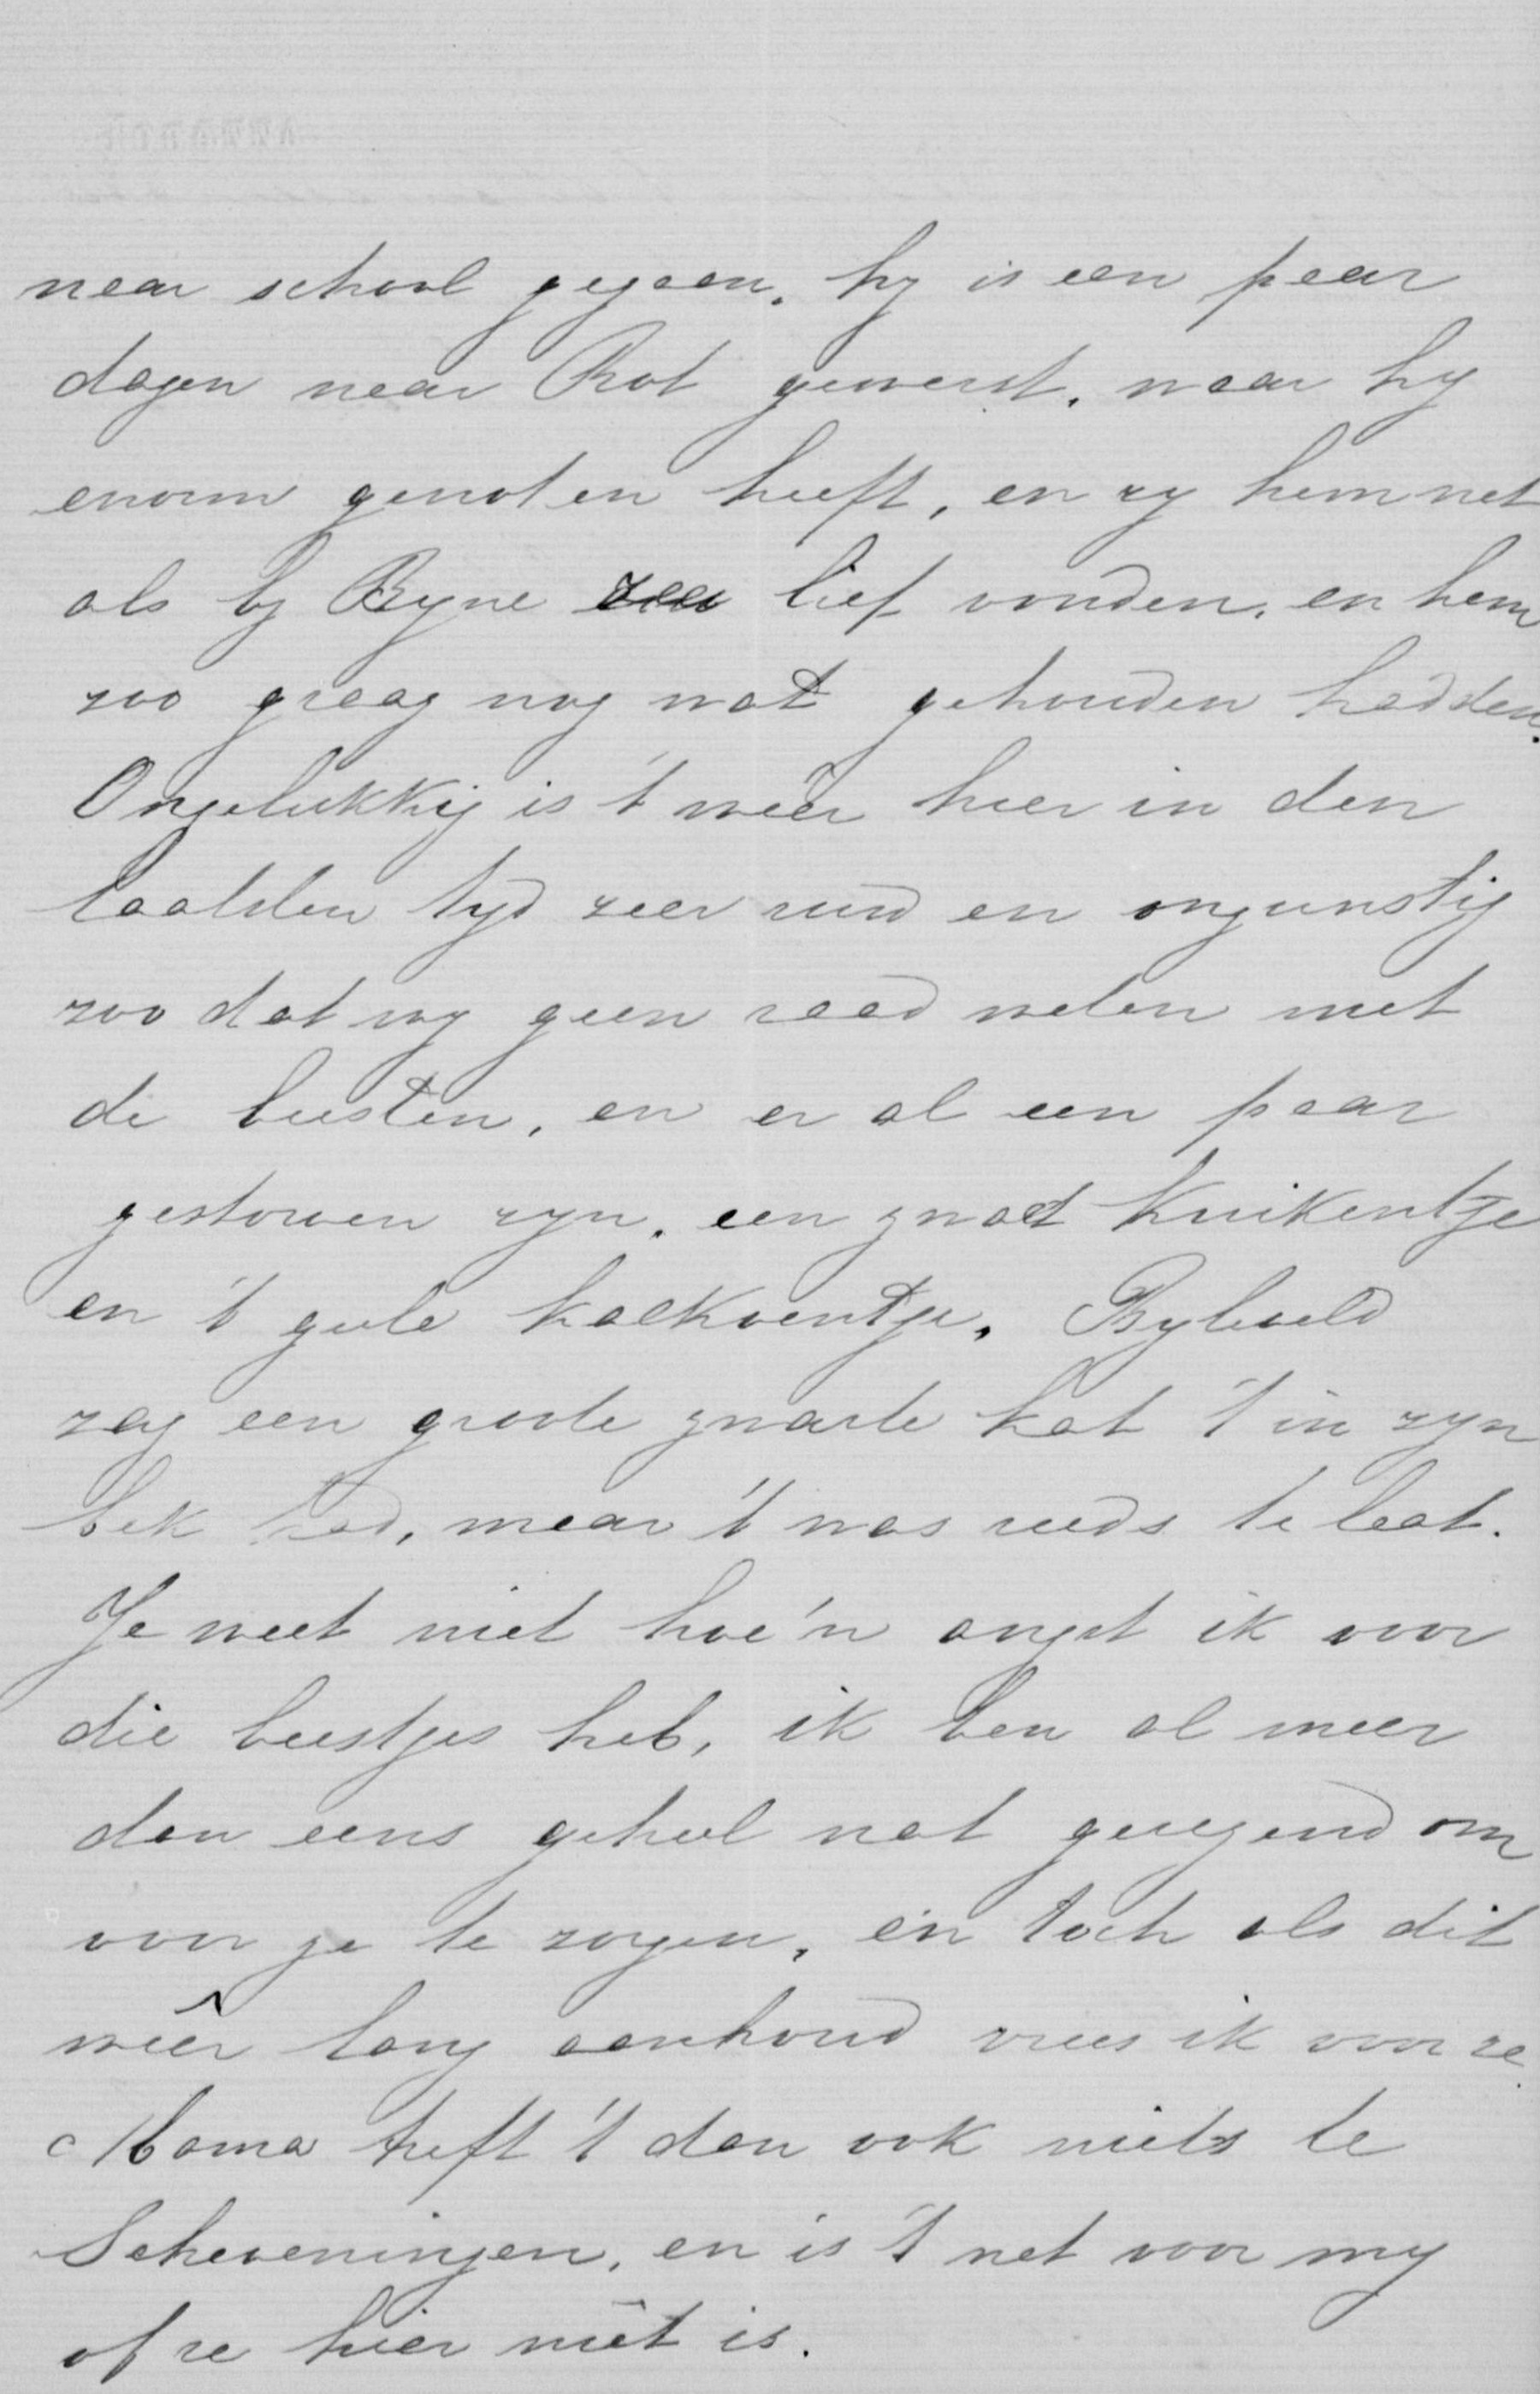 naar school gegaan. hy is een paar
dagen naar Rot geweest. waar hy
enorm genoten heeft, en zy hem net
als by Ryne zoo lief vonden. en hem
zoo graag nog wat gehouden hadden.
Ongelukkig is 't weêr hier in den
laatsten tyd zeer ruw en ongunstig
zoo dat wy geen raad weten met
de beesten, en er al een paar
gestorven zyn. een zwart kuikentje
en 't gele kalkoentje. Byleveld
zag een groote zwarte kat 't in zyn
bek had, maar 't was reeds te laat.
Je weet niet hoe'n angst ik voor
die beestjes heb, ik ben al meer
dan eens geheel nat geregend om
voor ze te zorgen, en toch als dit
weêr lang aanhoud vrees ik voor ze.
Mama treft 't dan ook niets te
Scheveningen, en is 't net voor my
of ze hier niet is.